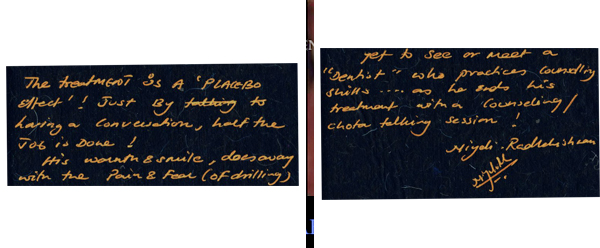 The treatMENT is A 'PLACEBO
effect'! Just By talking to
having a Conversation, half the
JOB is Done !
His warmth & smile, does away
with the Pain & Fear (of drilling)
yet to see or meet a
"Dentist" who practices Counselling
skills .... as he ends his
treatment with a Counseling/
chota talking session !